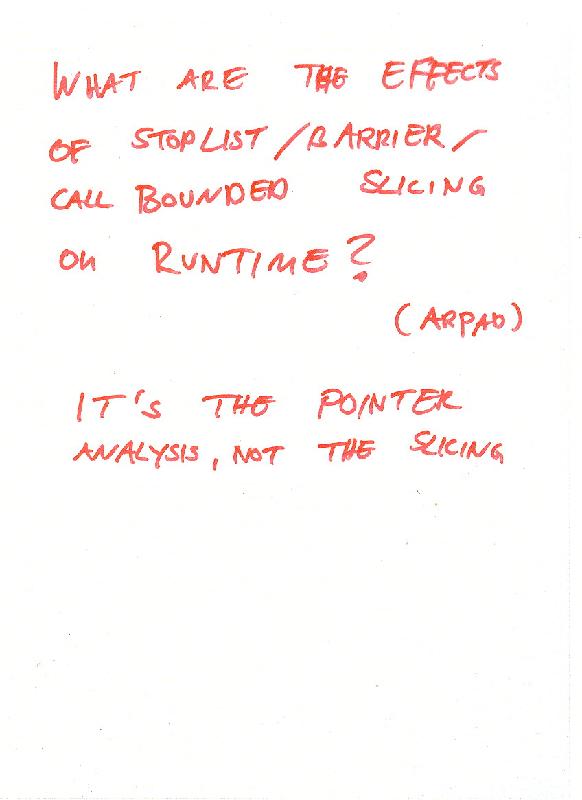 WHAT ARE THE EFFECTS
OF STOPLIST/BARRIER/
CALL BOUNDED SLICING
ON RUNTIME?
(ARPAD)
IT'S THE POINTER
ANALYSIS, NOT THE SLICING